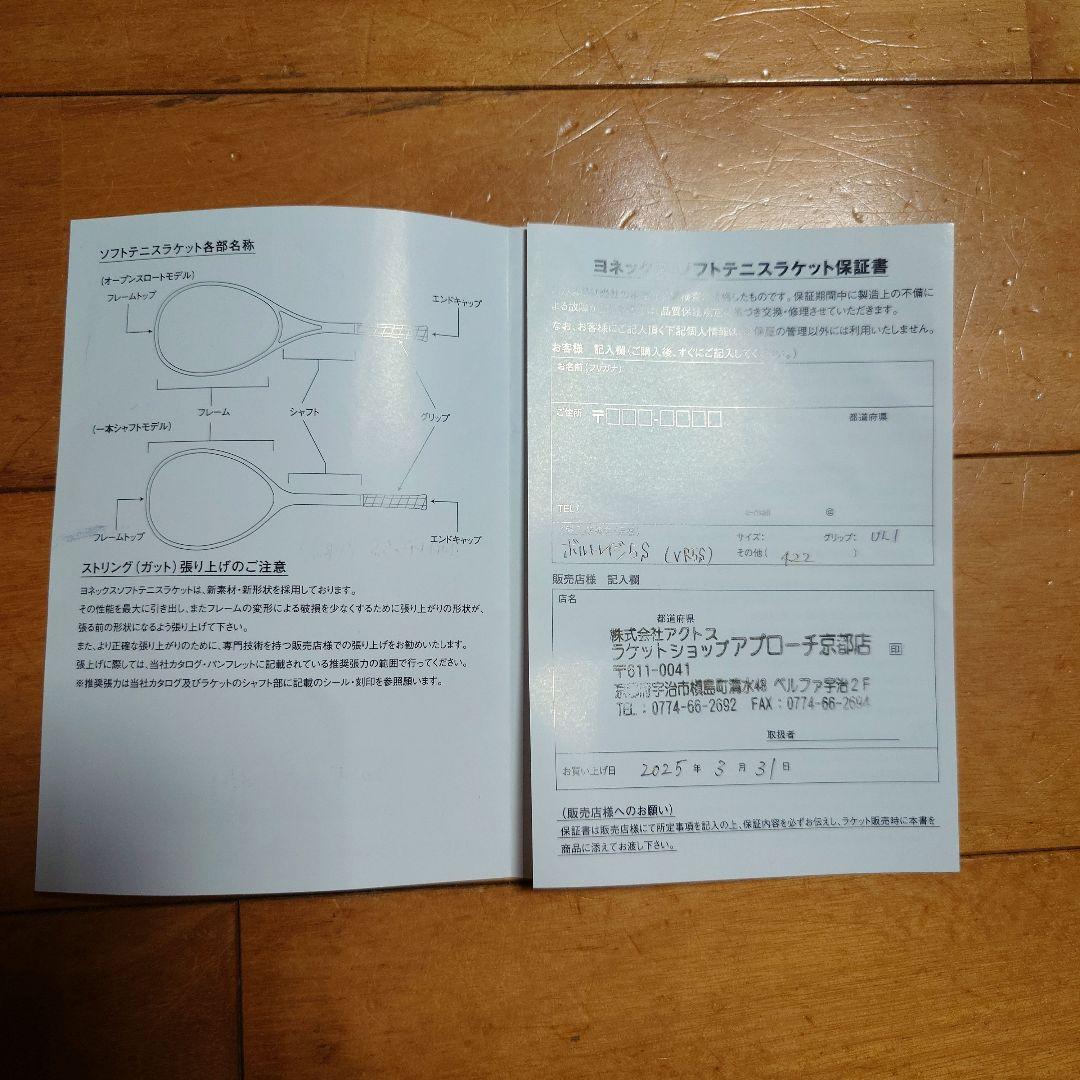 ソフトテニスラケット各部名称
(オープンスロートモデル)
フレームトップ
エンドキャップ
フレーム
シャフト
グリップ
(一本シャフトモデル)
フレームトップ
エンドキャップ
ストリング(ガット)張り上げのご注意
ヨネックスソフトテニスラケットは、新素材・新形状を採用しております。
その性能を最大に引き出し、またフレームの変形による破損を少なくするために張り上がりの形状が、
張る前の形状になるよう張り上げて下さい。
また、より正確な張り上がりのために、専門技術を持つ販売店様での張り上げをお勧めいたします。
張上げに際しては、当社カタログ・パンフレットに記載されている推奨張力の範囲で行ってください。
※推奨張力は当社カタログ及びラケットのシャフト部に記載のシール・刻印を参照願います。
ヨネックス ソフトテニスラケット保証書
したものです。保証期間中に製造上の不備に
よる故障 品質保証規定 基づき交換・修理させていただきます。
なお、お客様にご記入頂く下記個人情報は、 の管理以外には利用いたしません。
お客様 記入欄(ご購入後、すぐにご記入してください。)
お名前(フリガナ)
ご住所 〒□□□-□□□□ 都道府県
TEL( e-mail @
サイズ: グリップ: UL1
ボルトレイジ5S (VR5S) その他( 422 )
販売店様 記入欄
店名
都道府県
株式会社アクトス
ラケットショップアプローチ京都店 印
〒611-0041
京都府宇治市槇島町清水48 ベルファ宇治2F
TEL:0774-66-2692 FAX:0774-66-2694
取扱者
お買い上げ日 2025 年 3 月 31 日
(販売店様へのお願い)
保証書は販売店様にて所定事項を記入の上、保証内容を必ずお伝えし、ラケット販売時に本書を
商品に添えてお渡し下さい。